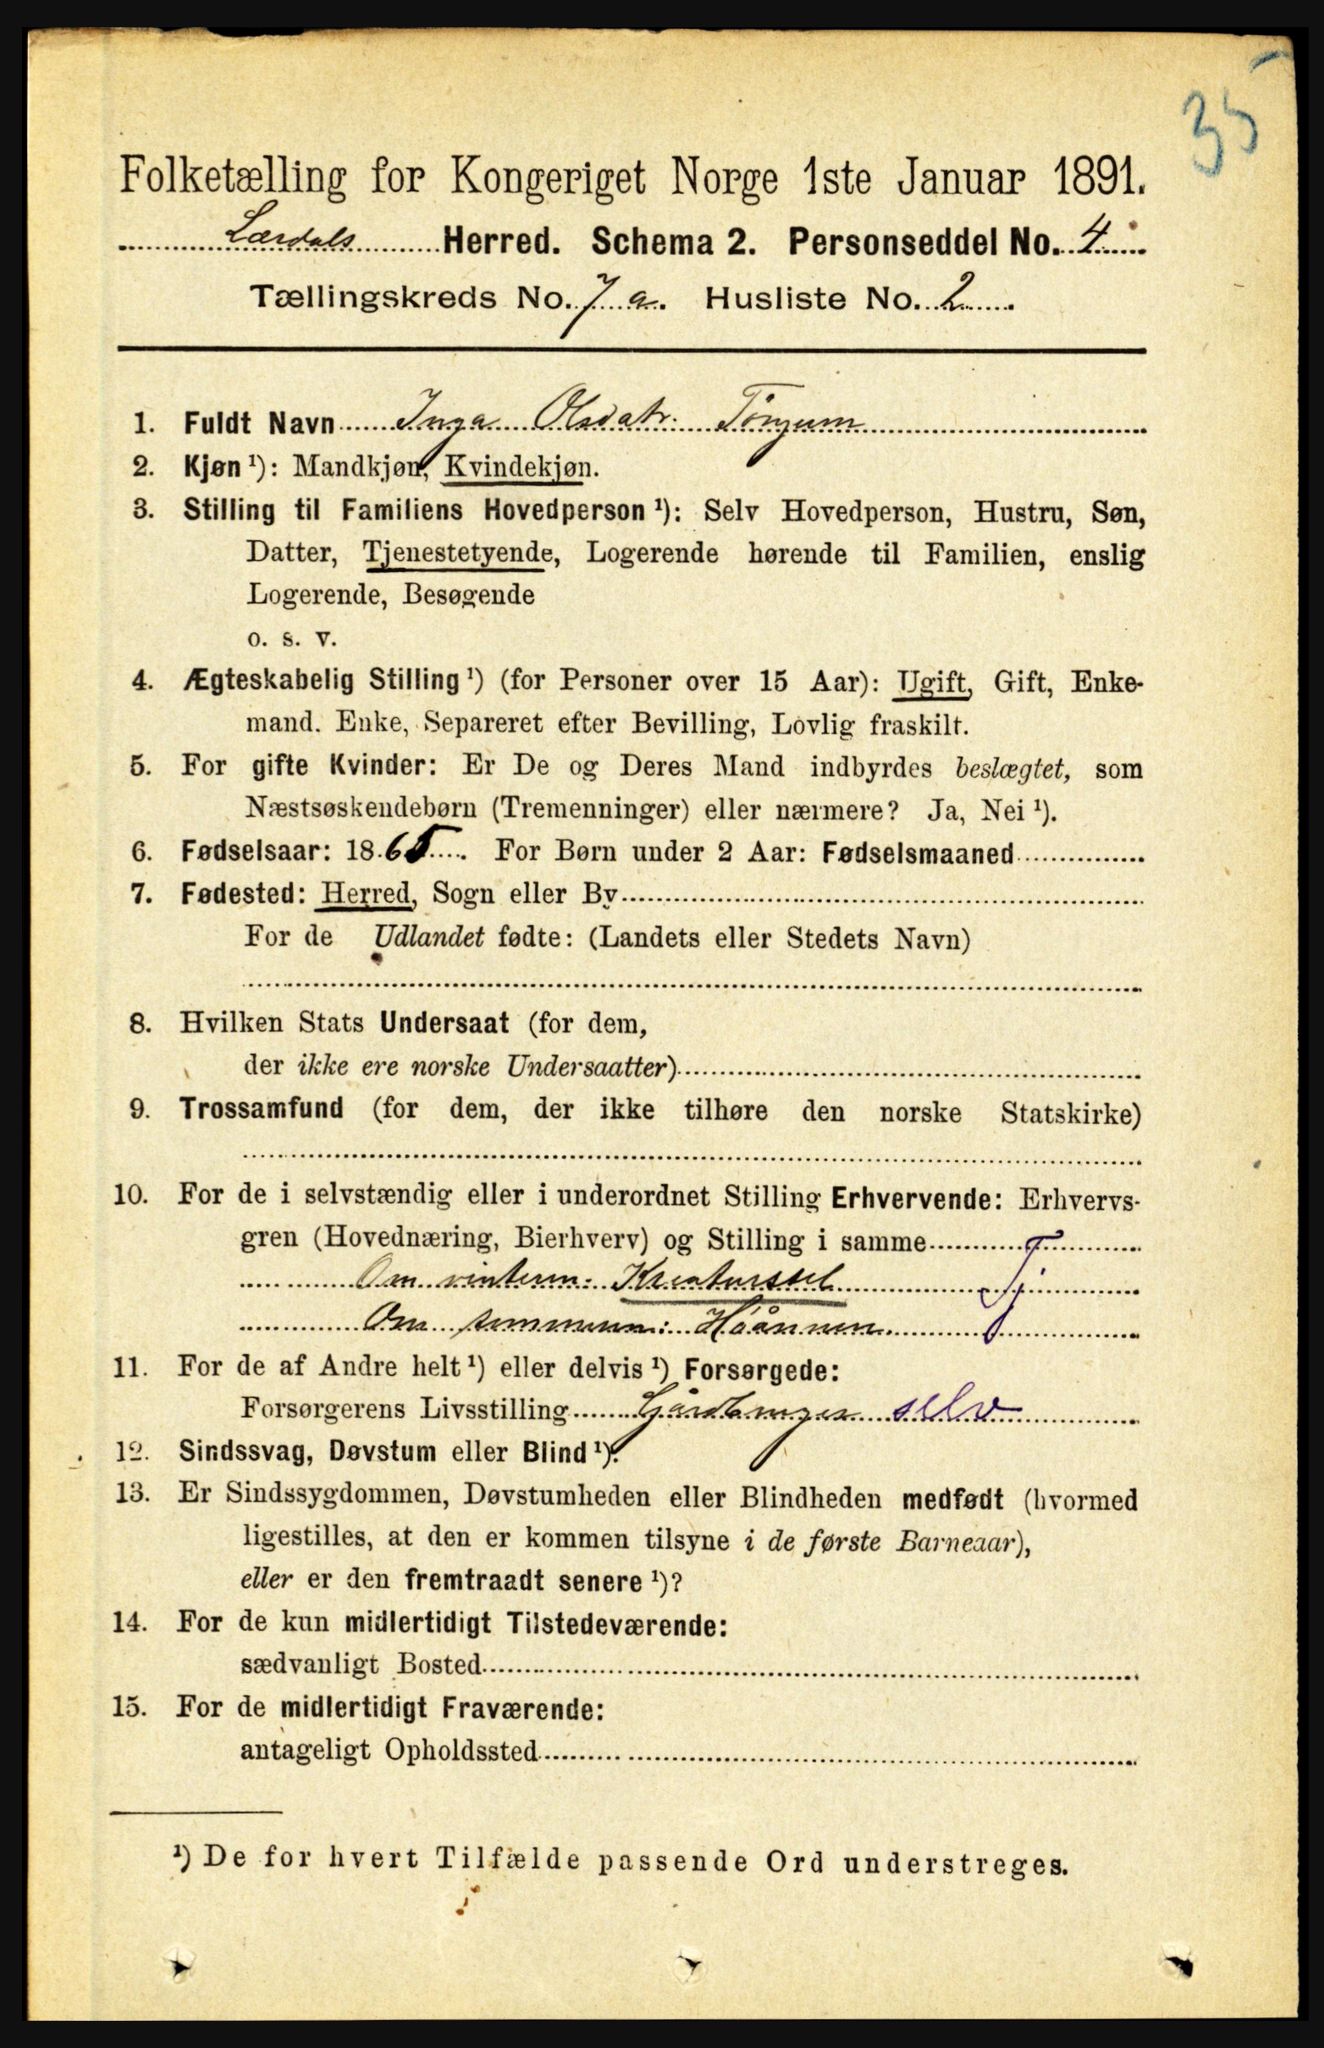 35
Folketælling for Kongeriget Norge 1ste Januar 1891.
Lærdals Herred. Schema 2. Personseddel No. 4
Tællingskreds No. 7 a. Husliste No. 2
1. Fuldt Navn Inga Olsdatr. Tønjum
2. Kjøn ¹): Mandkjøn, Kvindekjøn.
3. Stilling til Familiens Hovedperson ¹): Selv Hovedperson, Hustru, Søn,
Datter, Tjenestetyende, Logerende hørende til Familien, enslig
Logerende, Besøgende
o. s. v.
4. Ægteskabelig Stilling ¹) (for Personer over 15 Aar): Ugift, Gift, Enke-
mand. Enke, Separeret efter Bevilling, Lovlig fraskilt.
5. For gifte Kvinder: Er De og Deres Mand indbyrdes beslægtet, som
Næstsøskendebørn (Tremenninger) eller nærmere? Ja, Nei ¹).
6. Fødselsaar: 1865. For Børn under 2 Aar: Fødselsmaaned
7. Fødested: Herred, Sogn eller By
For de Udlandet fødte: (Landets eller Stedets Navn)
8. Hvilken Stats Undersaat (for dem,
der ikke ere norske Undersaatter)
9. Trossamfund (for dem, der ikke tilhøre den norske Statskirke)
10. For de i selvstændig eller i underordnet Stilling Erhvervende: Erhvervs-
gren (Hovednæring, Bierhverv) og Stilling i samme
Om vinteren: Kreaturstel Tj
Om sommeren: Håånnen
11. For de af Andre helt ¹) eller delvis ¹) Forsørgede:
Forsørgerens Livsstilling Gårdbruger selv
12. Sindssvag, Døvstum eller Blind ¹).
13. Er Sindssygdommen, Døvstumheden eller Blindheden medfødt (hvormed
ligestilles, at den er kommen tilsyne i de første Barneaar),
eller er den fremtraadt senere ¹)?
14. For de kun midlertidigt Tilstedeværende:
sædvanligt Bosted
15. For de midlertidigt Fraværende:
antageligt Opholdssted
¹) De for hvert Tilfælde passende Ord understreges.